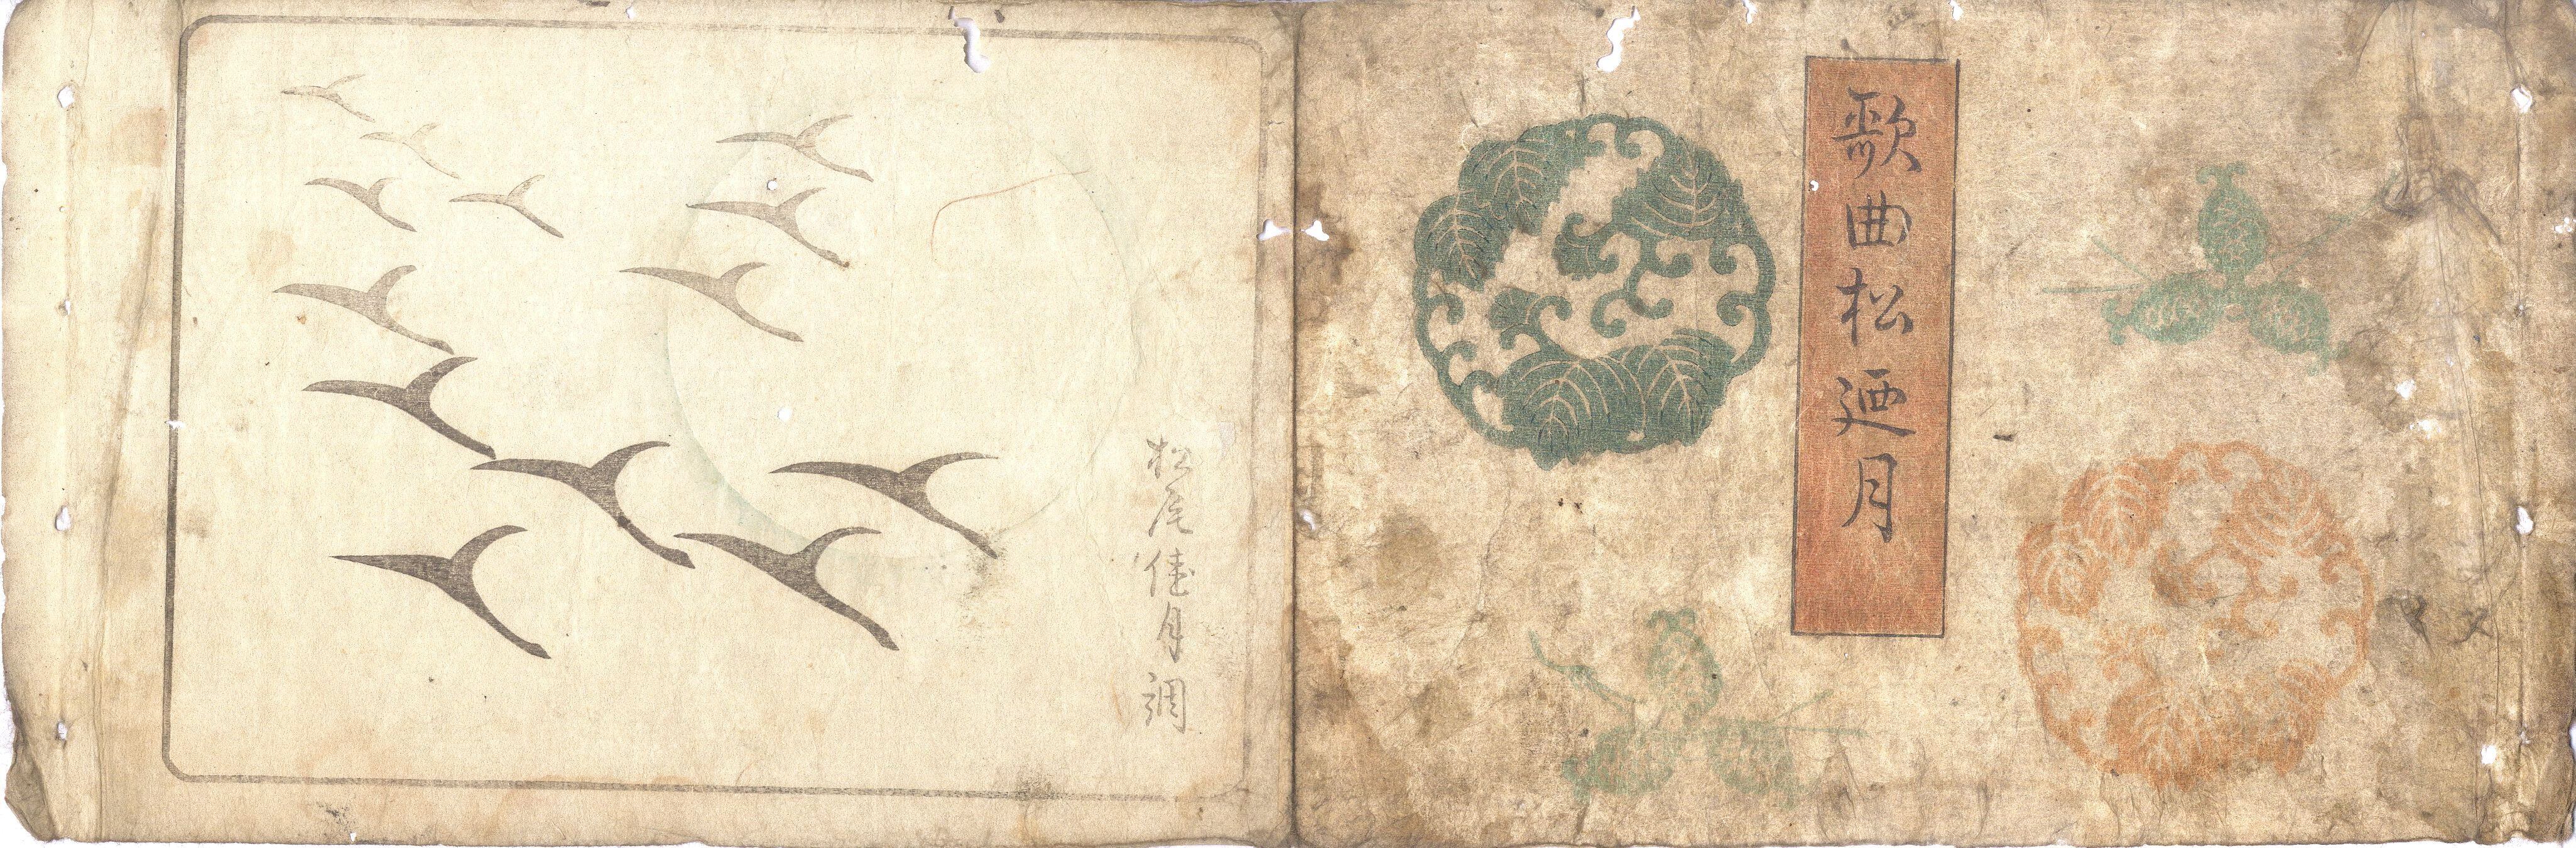 歌曲松廼月
松尾佳月調